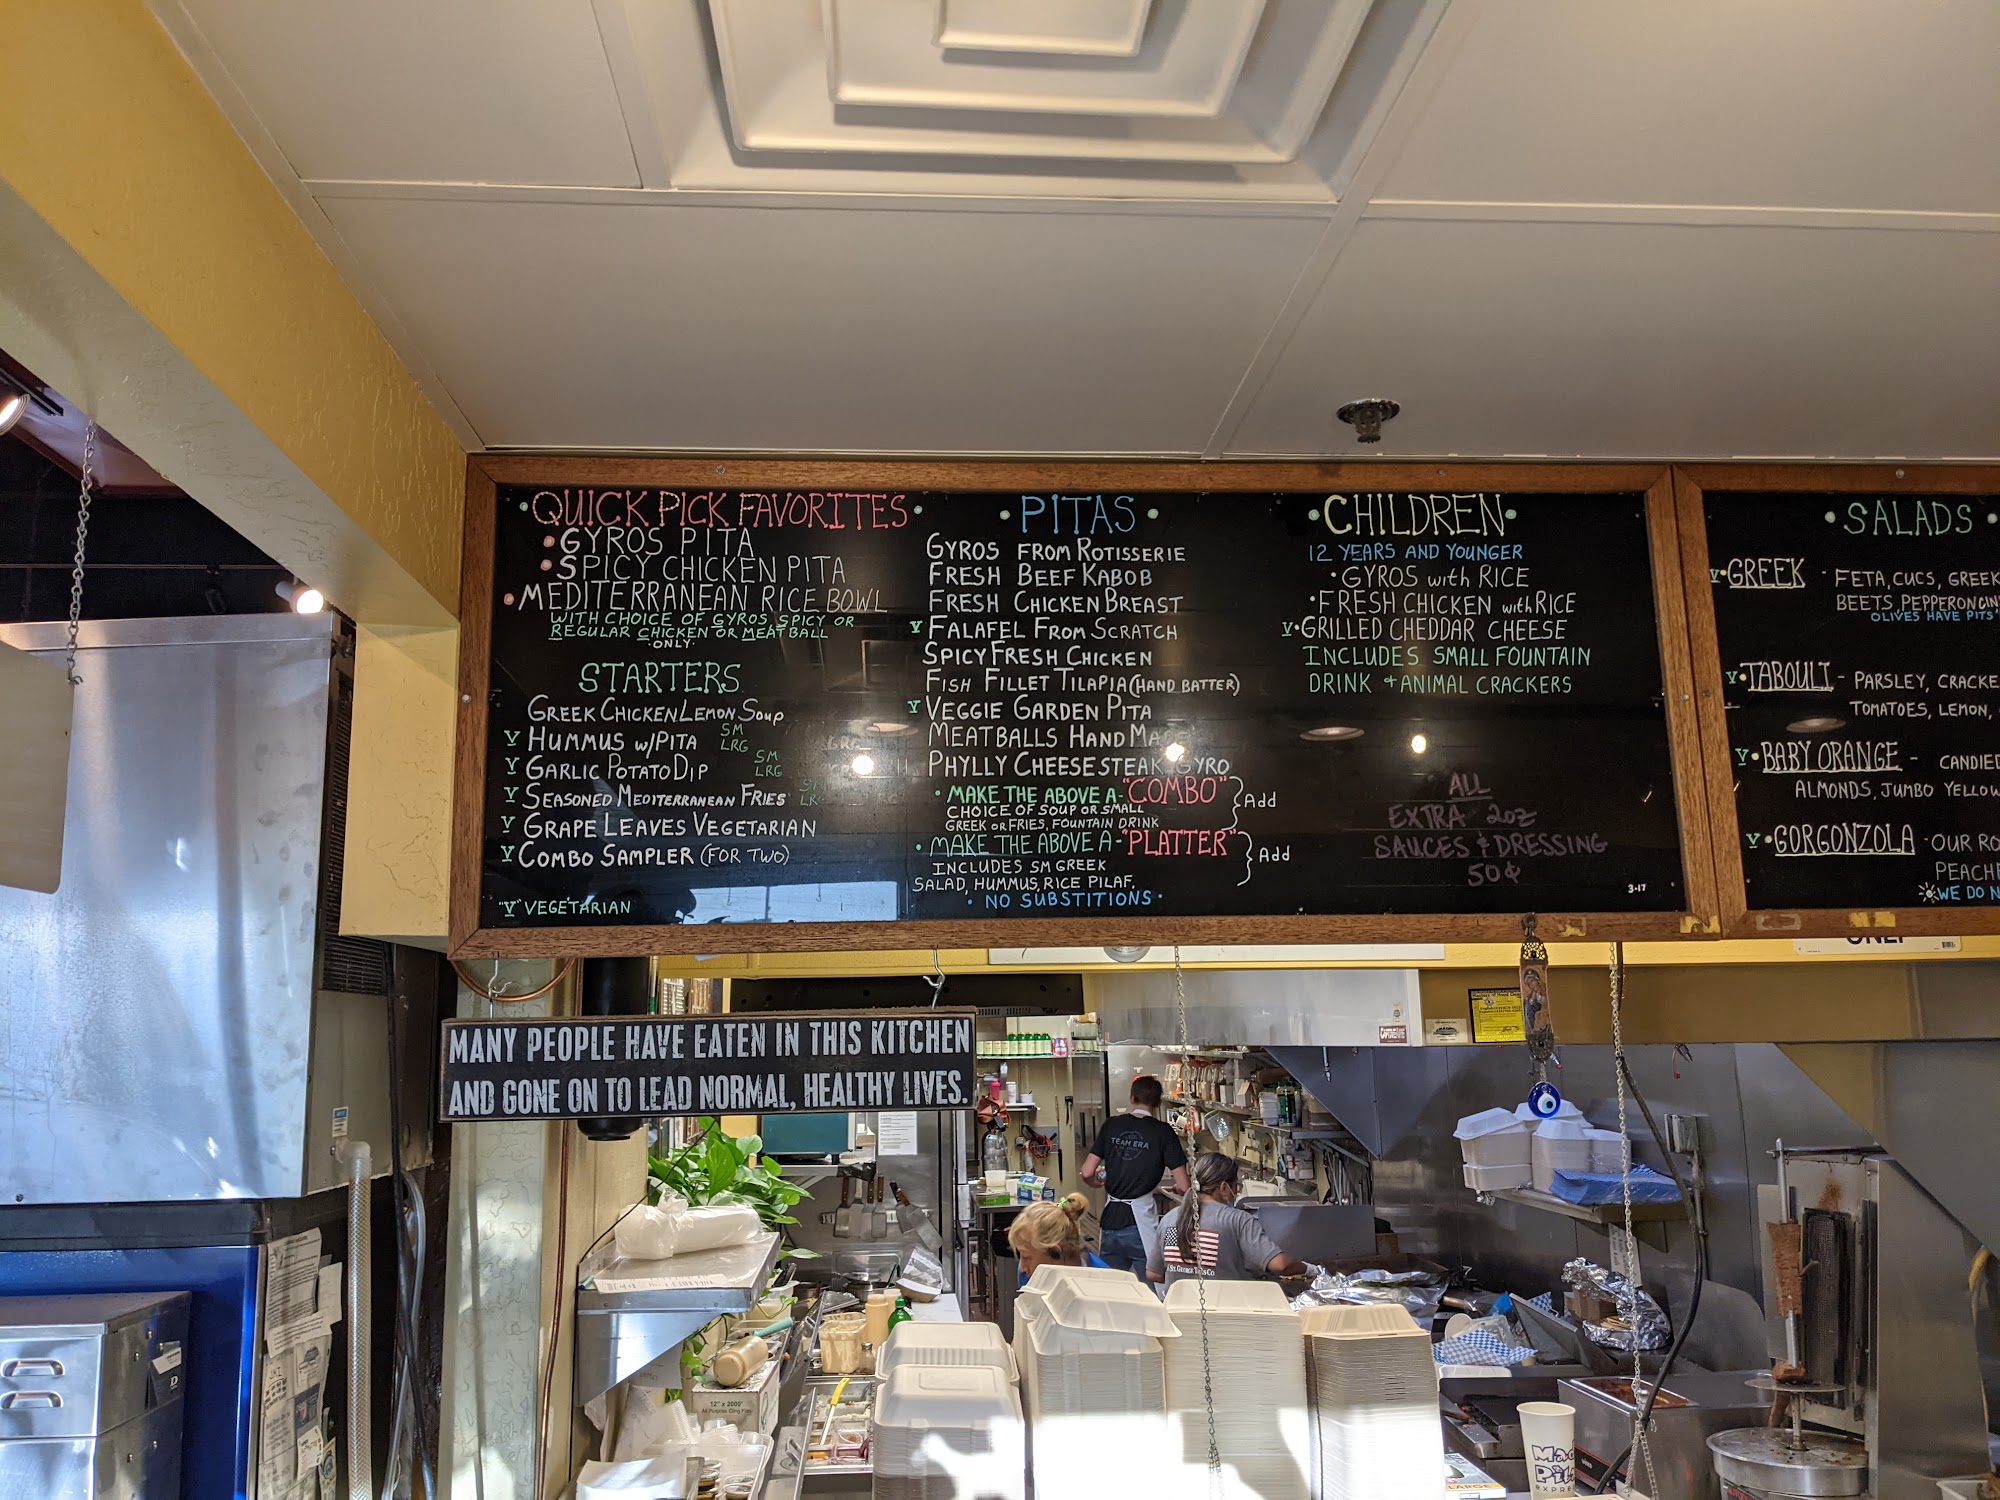 QUICK PICK FAVORITES
GYROS PITA
SPICY CHICKEN PITA
MEDITERRANEAN RICE BOWL
WITH CHOICE OF GYROS, SPICY OR
REGULAR CHICKEN OR MEATBALL
ONLY
STARTERS
GREEK CHICKEN LEMON SOUP
V HUMMUS W/PITA SM
LRG
V GARLIC POTATO DIP SM
LRG
V SEASONED MEDITERRANEAN FRIES
V GRAPE LEAVES VEGETARIAN
V COMBO SAMPLER (FOR TWO)
"V" VEGETARIAN
PITAS
GYROS FROM ROTISSERIE
FRESH BEEF KABOB
FRESH CHICKEN BREAST
V FALAFEL FROM SCRATCH
SPICY FRESH CHICKEN
FISH FILLET TILAPIA (HAND BATTER)
V VEGGIE GARDEN PITA
MEATBALLS HAND MADE
PHYLLY CHEESESTEAK GYRO
• MAKE THE ABOVE A - "COMBO" } Add
CHOICE OF SOUP OR SMALL
GREEK OR FRIES, FOUNTAIN DRINK
• MAKE THE ABOVE A - "PLATTER" } Add
INCLUDES SM GREEK
SALAD, HUMMUS, RICE PILAF.
• NO SUBSTITIONS •
• CHILDREN •
12 YEARS AND YOUNGER
• GYROS with RICE
• FRESH CHICKEN with RICE
V • GRILLED CHEDDAR CHEESE
INCLUDES SMALL FOUNTAIN
DRINK + ANIMAL CRACKERS
ALL
EXTRA 2oz
SAUCES & DRESSING
50¢
3-17
• SALADS •
V • GREEK - FETA, CUCS, GREEK
BEETS, PEPPERONCIN
OLIVES HAVE PITS
V • TABOULI - PARSLEY, CRACKE
TOMATOES, LEMON,
V • BABY ORANGE - CANDIED
ALMONDS, JUMBO YELLOW
V • GORGONZOLA - OUR RO
PEACHE
WE DO N
MANY PEOPLE HAVE EATEN IN THIS KITCHEN
AND GONE ON TO LEAD NORMAL, HEALTHY LIVES.
TEAM ERA
12" x 2000'
LARGE